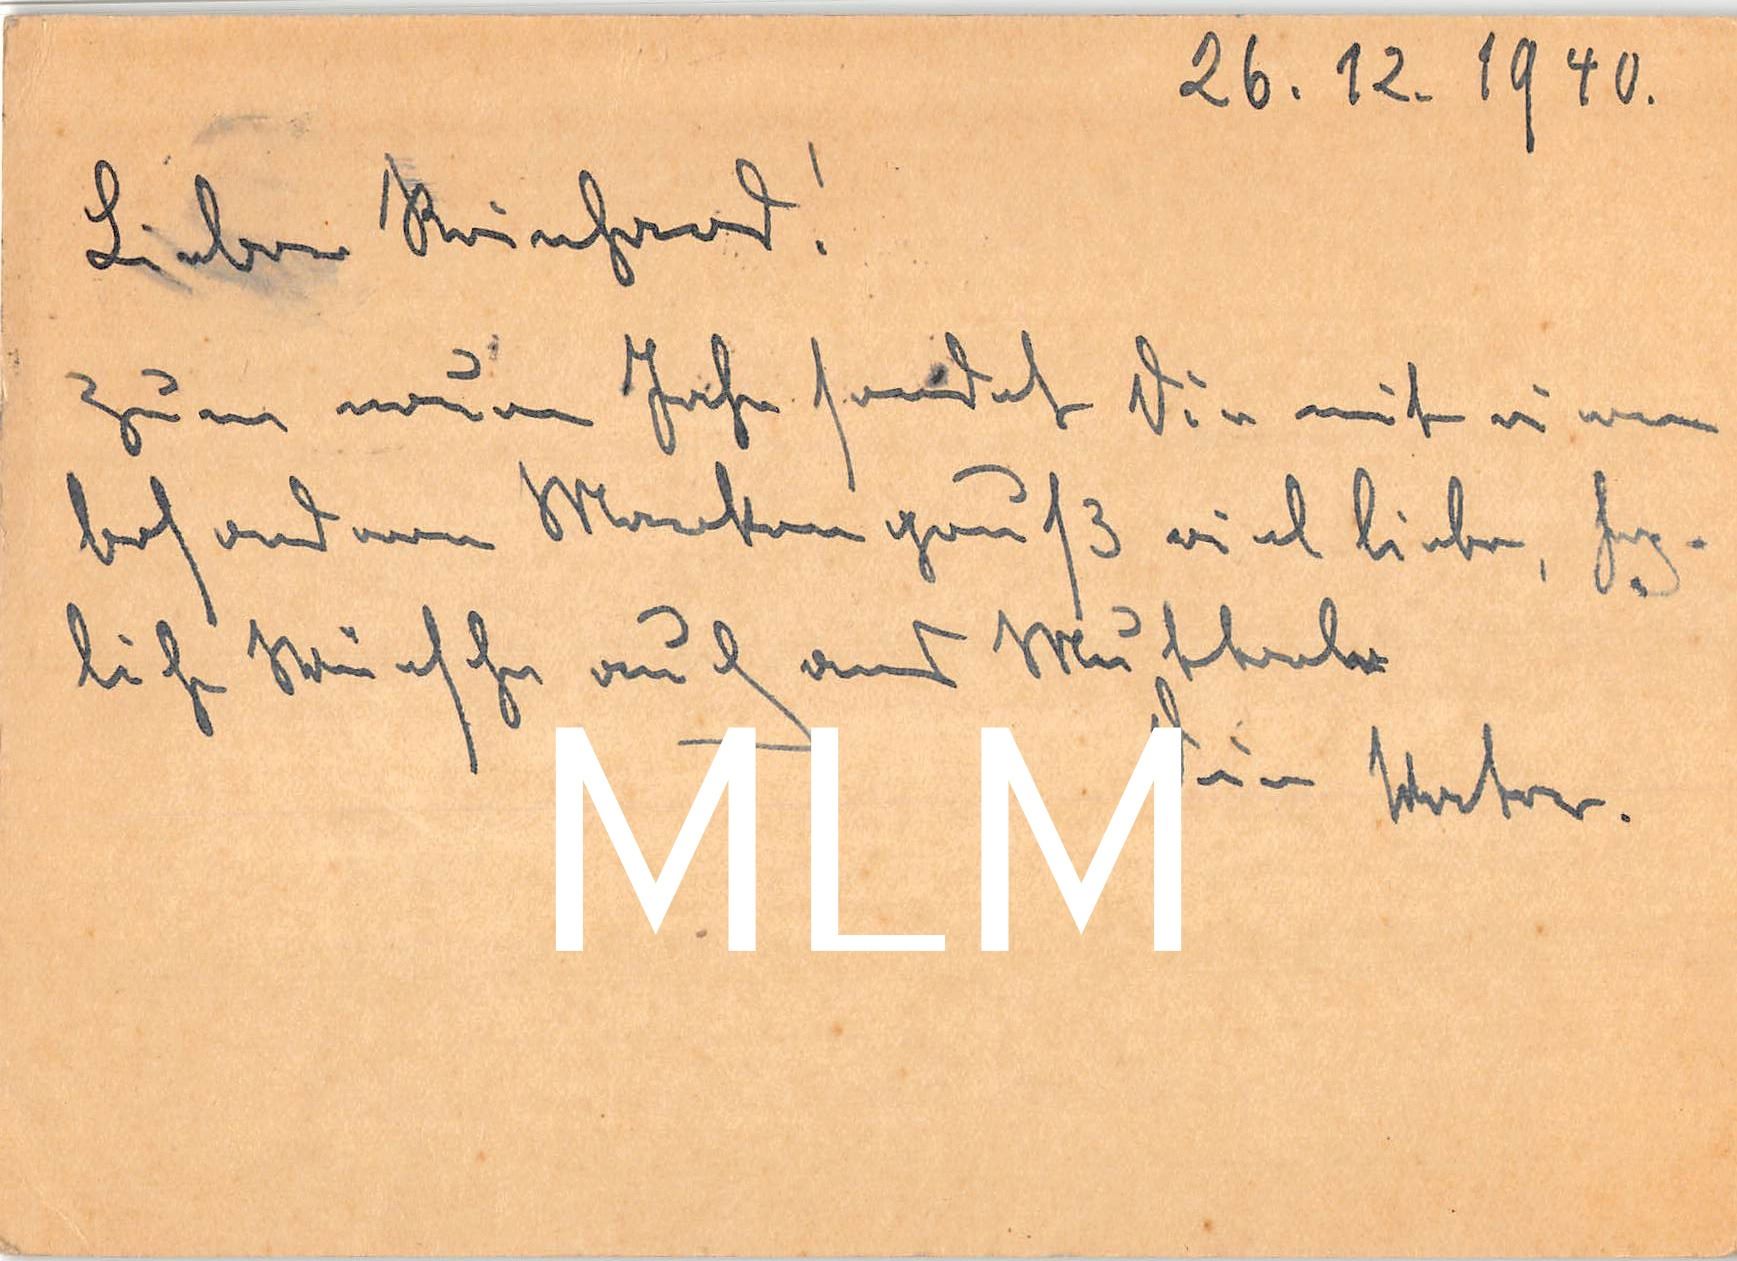 26. 12. 1940.
Lieber Reinhard!
Zum neuen Jahr sendet Dir mit einem
besonderen Markengruß viel liebe, herz-
liche Wünsche auch
Dein Vater.
MLM